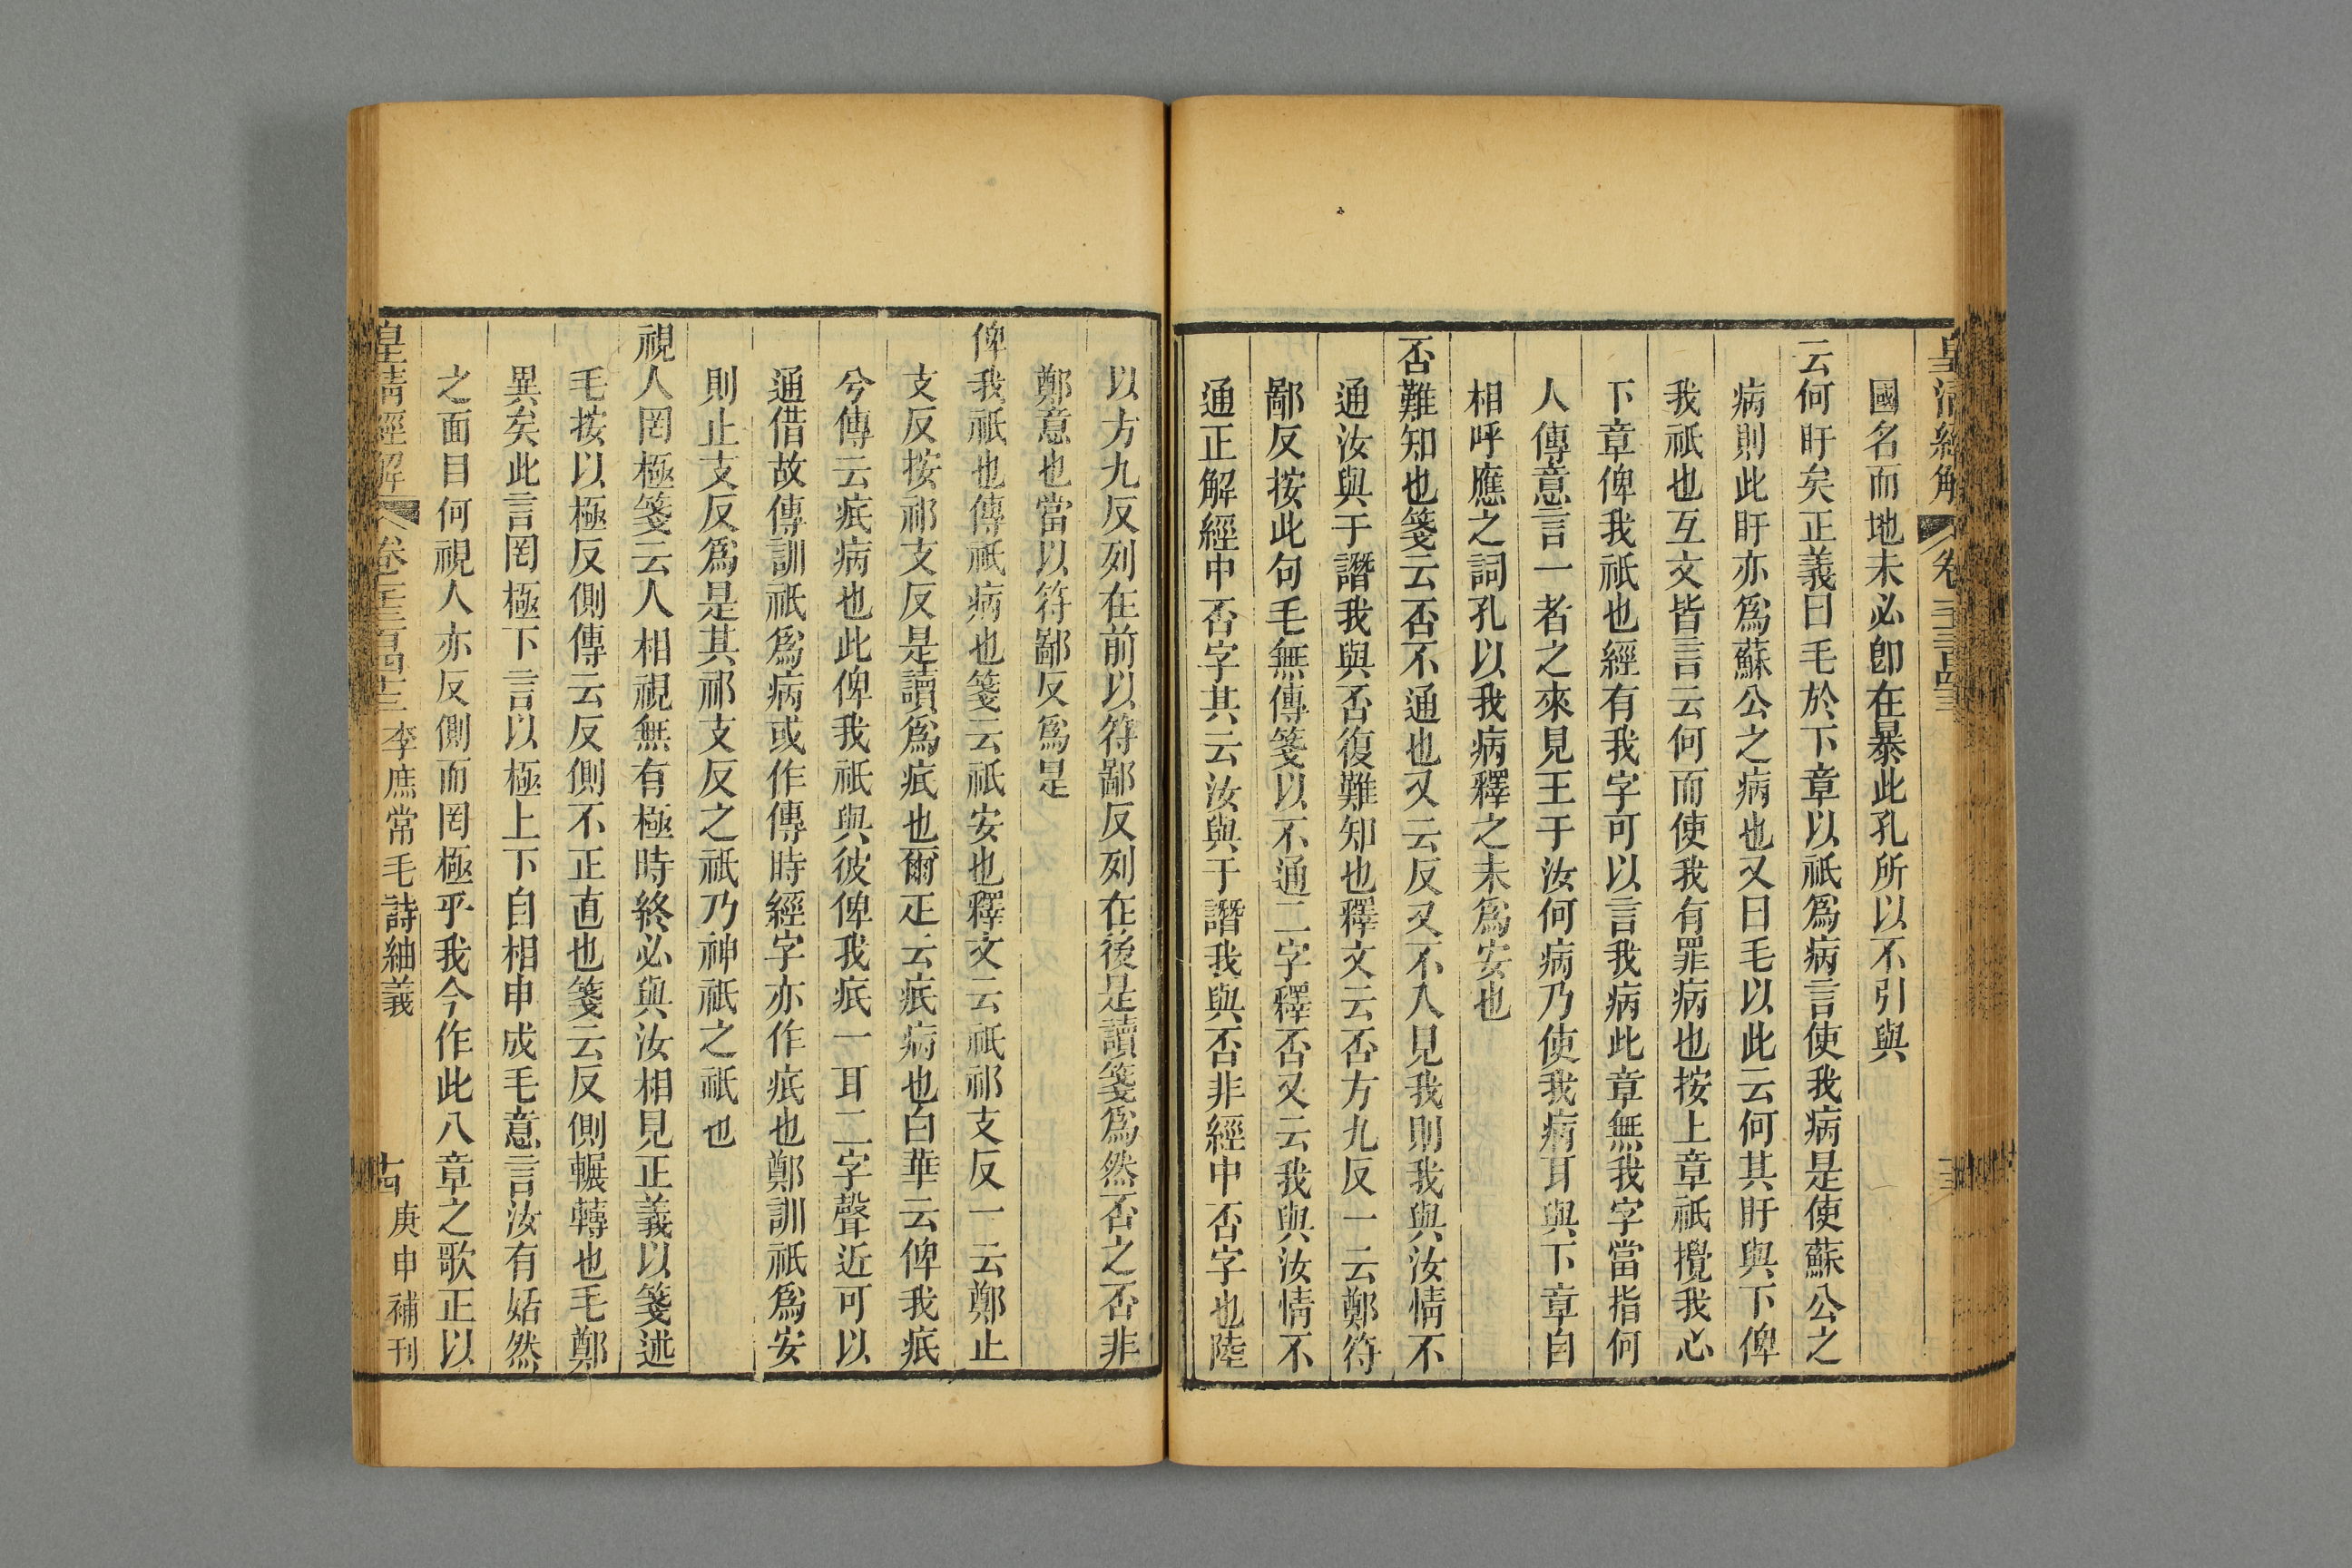 皇清經解
國名而地未必卽在暴此孔所以不引與
云何盱矣正義曰毛於下章以祇爲病言使我病是使蘇公之
病則此盱亦爲蘇公之病也又曰毛以此云何其盱與下俾
我祇也互文皆言云何而使我有罪病也按上章祇攪我心
下章俾我祇也經有我字可以言我病此章無我字當指何
人傳意言一者之來見王于汝何病乃使我病耳與下章自
相呼應之詞孔以我病釋之未爲安也
否難知也箋云否不通也又云反又不入見我則我與汝情不
通汝與于譖我與否復難知也釋文云否方九反一云鄭符
鄙反按此句毛無傳箋以不通二字釋否又云我與汝情不
通正解經中否字其云汝與于譖我與否非經中否字也陸
以方九反列在前以符鄙反列在後是讀箋爲然否之否非
鄭意也當以符鄙反爲是
俾我祇也傳祇病也箋云祇安也釋文云祇祁支反一云鄭止
支反按祁支反是讀爲疧也爾疋云疧病也白華云俾我疧
兮傳云疧病也此俾我祇與彼俾我疧一耳二字聲近可以
通借故傳訓祇爲病或作傳時經字亦作疧也鄭訓祇爲安
則止支反爲是其祁支反之祇乃神祇之祇也
視人罔極箋云人相視無有極時終必與汝相見正義以箋述
毛按以極反側傳云反側不正直也箋云反側輾轉也毛鄭
異矣此言罔極下言以極上下自相申成毛意言汝有姡然
之面目何視人亦反側而罔極乎我今作此八章之歌正以
皇清經解 卷 李庶常毛詩紬義 十四 庚申補刊